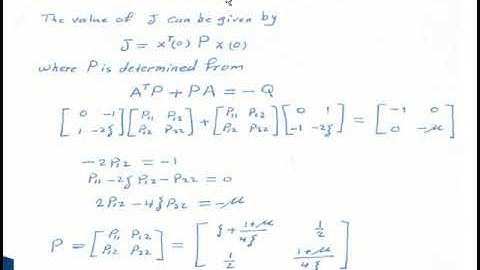 The value of J can be given by
J = xᵀ(0) P x(0)
where P is determined from
AᵀP + PA = −Q
[0 −1; 1 −2ξ] [P₁₁ P₁₂; P₁₂ P₂₂] + [P₁₁ P₁₂; P₁₂ P₂₂] [0 1; −1 −2ξ] = [−1 0; 0 −μ]
−2P₁₂ = −1
P₁₁ − 2ξP₁₂ − P₂₂ = 0
2P₁₂ − 4ξP₂₂ = −μ
P = [P₁₁ P₁₂; P₁₂ P₂₂] = [ξ + (1+μ)/4ξ 1/2; 1/2 (1+μ)/4ξ]